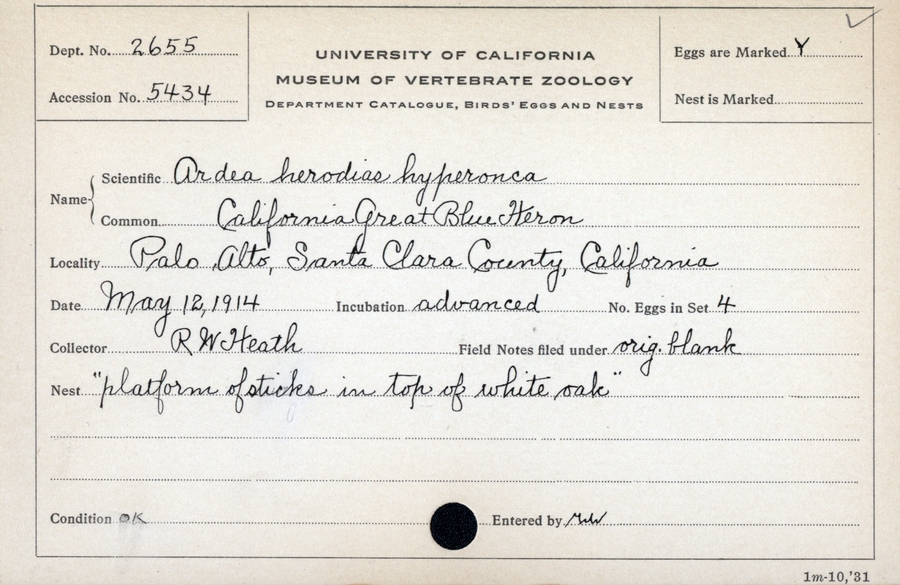 Dept. No. 2655
Accession No. 5434
UNIVERSITY OF CALIFORNIA
MUSEUM OF VERTEBRATE ZOOLOGY
DEPARTMENT CATALOGUE, BIRDS' EGGS AND NESTS
Eggs are Marked Y
Nest is Marked
Name
Scientific Ardea herodias hyperonca
Common California Great Blue Heron
Locality Palo Alto, Santa Clara County, California
Date May 12, 1914 Incubation advanced No. Eggs in Set 4
Collector R W Heath Field Notes filed under orig. blank
Nest "platform of sticks in top of white oak"
Condition OK Entered by
1m-10,'31